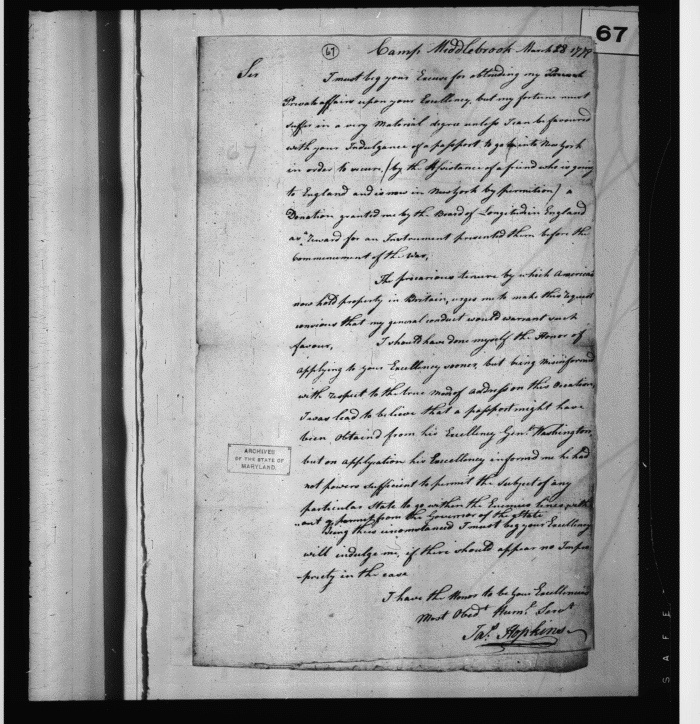 67
67
Camp Middlebrook March 28 1779
Sir
I must beg your Excuse for obtruding my
Private affairs upon your Excellency, but my fortune must
suffer in a very Material degree unless I can be favoured
with your Indulgance of a passport to go into New York
in order to secure, (by the Assistance of a friend who is going
to England and is now in New York by permition) a
Donation granted me by the Board of Longitude in England
as a reward for an Instrument presented them before the
commencement of the War,
The precarious tenure by which American
now hold property in Britain, urges me to make this request
concious that my general conduct would warrant such
favour, I should have done myself the Honor of
applying to your Excellency sooner, but being Misinformed
with respect to the true Mode of Address on this Occation,
I was lead to believe that a passport might have
been Obtaind from his Excellency Genl. Washington,
but on applycation his Excellency informd me he had
not powers sufficient to permit the subject of any
particular State to go within the Enemies lines with
out a permit from the Governor of the State
Being thus circumstanced I must beg your Excellency
will indulge me, if there should appear no Impro
priety in the case
I have the Honor to be your Excellencies
Most Obedt Huml. Servt
Jas. Hopkins
ARCHIVES
OF THE STATE OF
MARYLAND.
67
SAFE